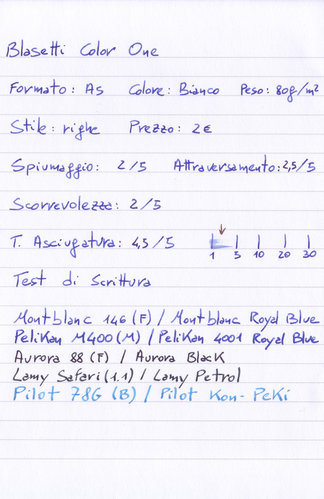 Blasetti Color One
Formato: A5 Colore: Bianco Peso: 80g/m²
Stile: righe Prezzo: 2€
Spiumaggio: 2/5 Attraversamento: 2,5/5
Scorrevolezza: 2/5
T. Asciugatura: 4,5/5
1 5 10 20 30
Test di Scrittura
Montblanc 146 (F) / Montblanc Royal Blue
Pelikan M400 (M) / Pelikan 4001 Royal Blue
Aurora 88 (F) / Aurora Black
Lamy Safari (1.1) / Lamy Petrol
Pilot 78G (B) / Pilot Kon-Peki